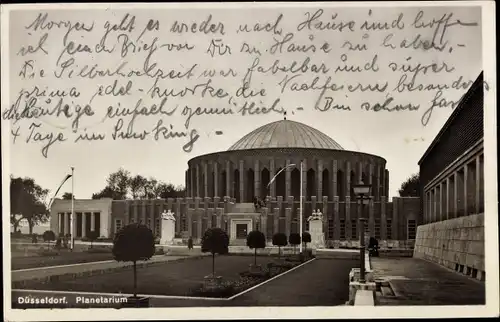 Morgen geht es wieder nach Hause und hoffe
viel ein Brief vor Dir zu Hause zu haben.-
Die Silberhochzeit war fabelbar und süper
prima edel-knorke die Nachfeiern besonders
die heutige einfach gemütlich.- Bin schon ganz
4 Tage im Smoking
Düsseldorf. Planetarium